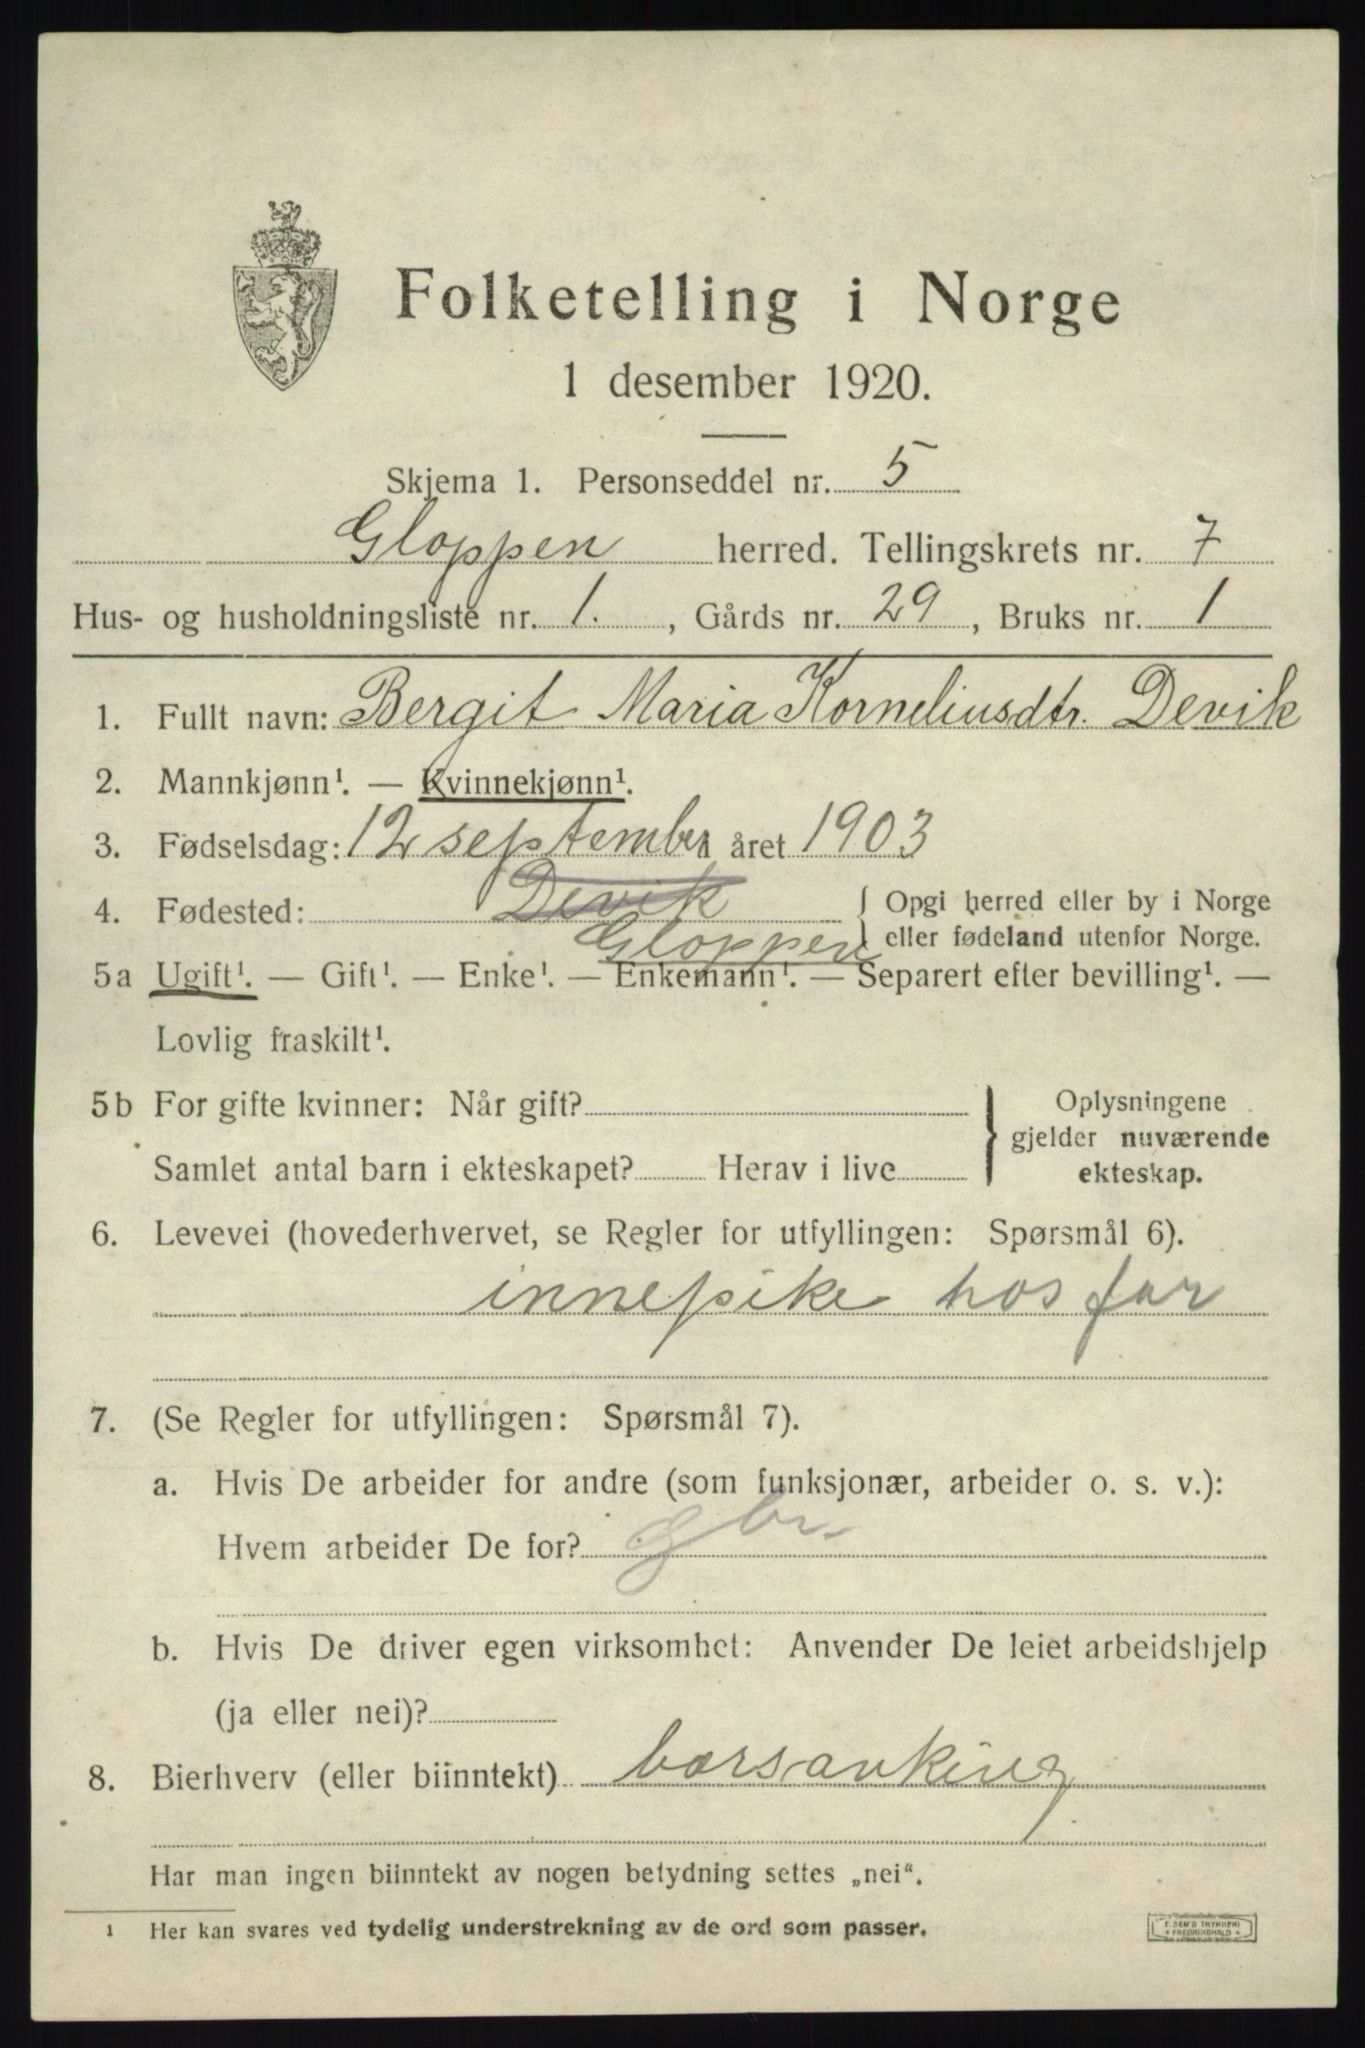 Folketelling i Norge
1 desember 1920.
Skjema 1. Personseddel nr. 5
Gloppen herred. Tellingskrets nr. 7
Hus- og husholdningsliste nr. 1. , Gårds nr. 29 , Bruks nr. 1
1. Fullt navn: Bergit Maria Korneliusdtr. Devik
2. Mannkjønn¹. — Kvinnekjønn¹.
3. Fødselsdag: 12 september året 1903
4. Fødested: Devik { Opgi herred eller by i Norge
Gloppen eller fødeland utenfor Norge.
5a Ugift¹. — Gift¹. — Enke¹. — Enkemann¹. — Separert efter bevilling¹. —
Lovlig fraskilt¹.
5b For gifte kvinner: Når gift? } Oplysningene
gjelder nuværende
Samlet antal barn i ekteskapet? Herav i live ekteskap.
6. Levevei (hovederhvervet, se Regler for utfyllingen: Spørsmål 6).
innepike hos far
7. (Se Regler for utfyllingen: Spørsmål 7).
a. Hvis De arbeider for andre (som funksjonær, arbeider o. s. v.):
Hvem arbeider De for? Gbr.
b. Hvis De driver egen virksomhet: Anvender De leiet arbeidshjelp
(ja eller nei)?
8. Bierhverv (eller biinntekt)
Har man ingen biinntekt av nogen betydning settes „nei“.
1 Her kan svares ved tydelig understrekning av de ord som passer.
E. SEM'S TRYKKERI
FREDRIKSHALD